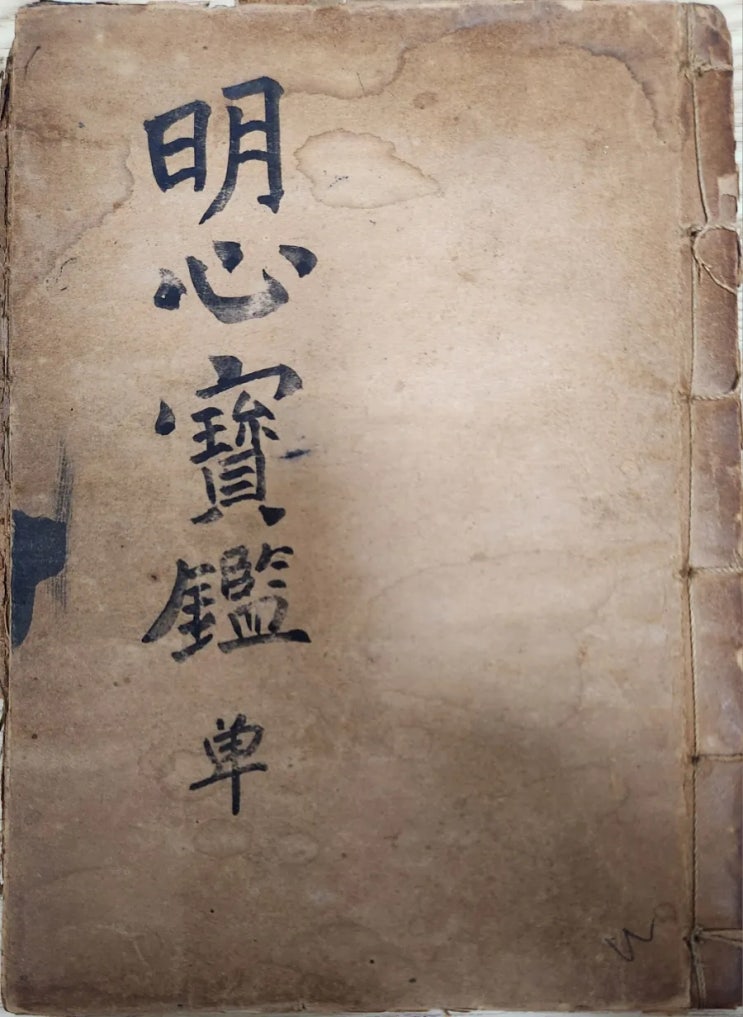 明心寶鑑 単